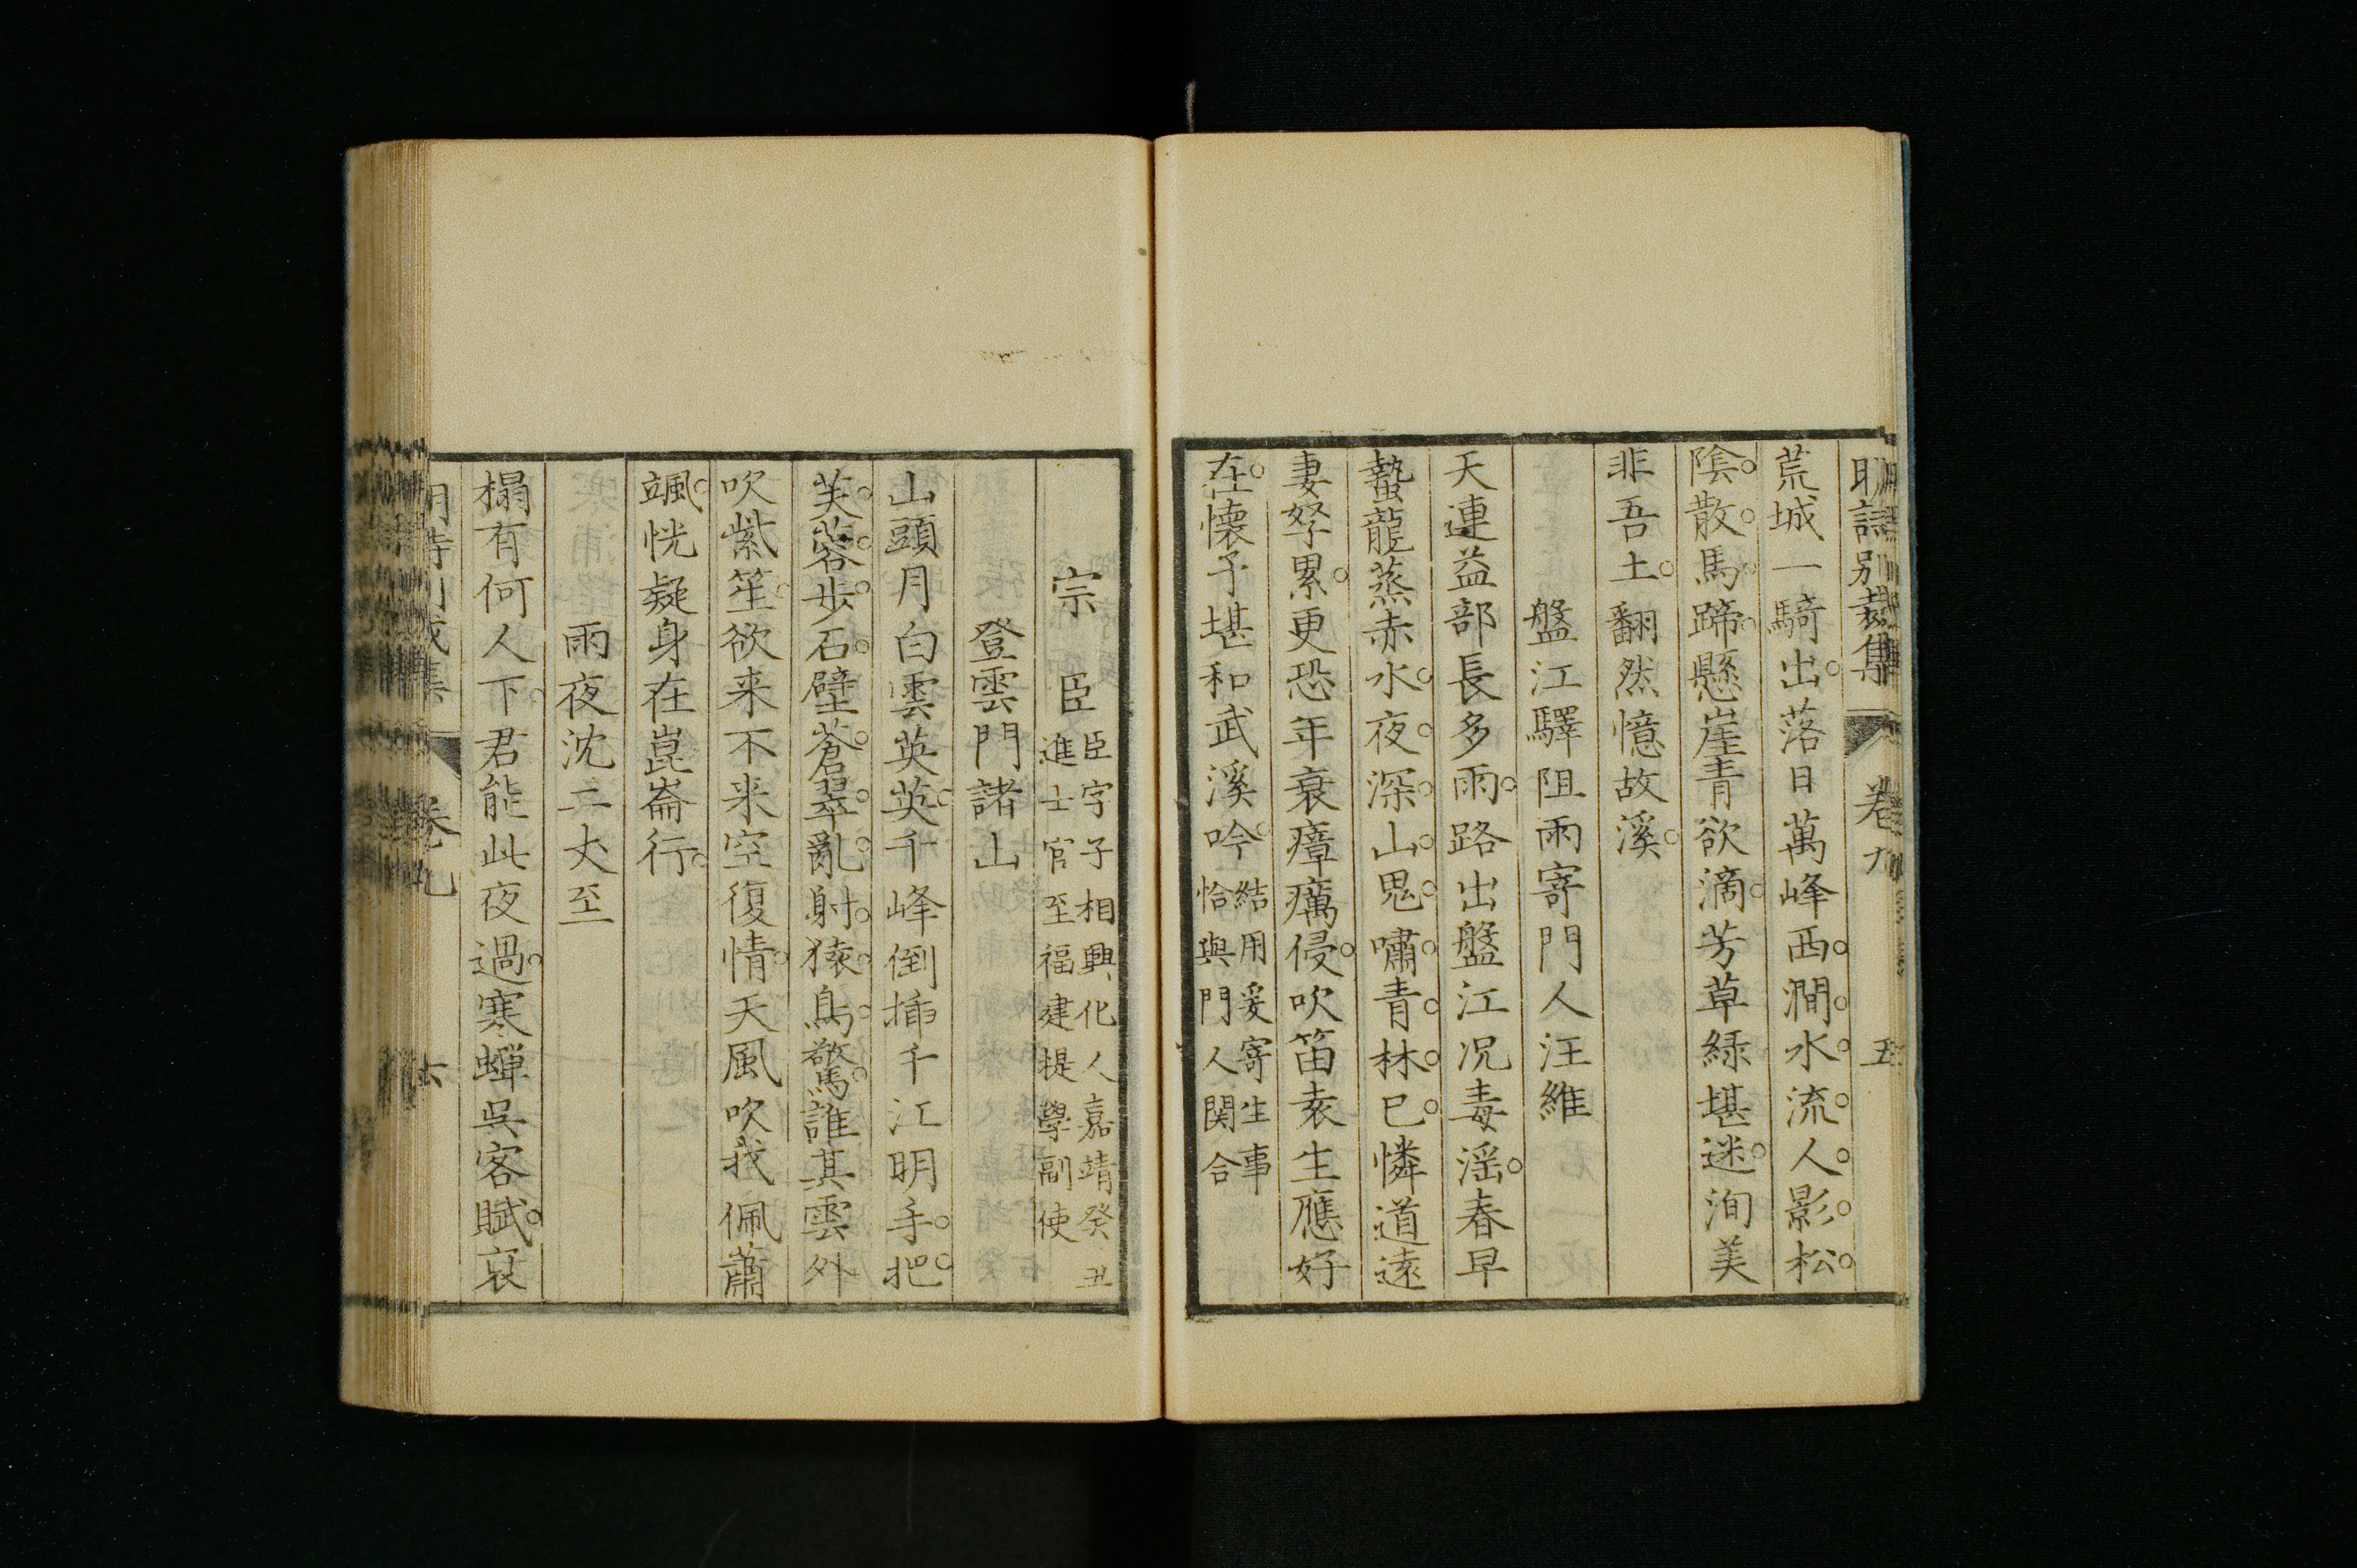 明詩別裁集 卷九 五
荒城一騎出落日萬峰西澗水流人影松
陰散馬蹄懸崖青欲滴芳草綠堪迷洵美
非吾土翻然憶故溪
盤江驛阻雨寄門人汪維
天連益部長多雨路出盤江況毒淫春早
蟄龍蒸赤水夜深山鬼嘯青林已憐道遠
妻孥累更恐年衰瘴癘侵吹笛袁生應好
在懷予堪和武溪吟
結用爰寄生事
恰與門人関合
宗臣
臣字子相興化人嘉靖癸丑
進士官至福建提學副使
登雲門諸山
山頭月白雲英英千峰倒插千江明手把
芙蓉步石壁蒼翠亂射猿鳥驚誰其雲外
吹紫笙欲来不来空復情天風吹我佩蕭
颯恍疑身在崑崙行
雨夜沈二丈至
榻有何人下君能此夜過寒蟬吳客賦哀
卷九
六